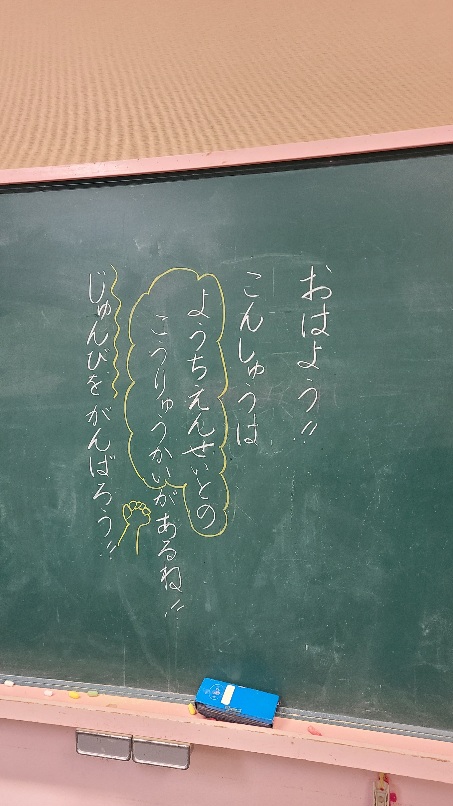 おはよう!!
こんしゅうは
ようちえんせいとの
こうりゅうかいがあるね!!
じゅんびをがんばろう!!